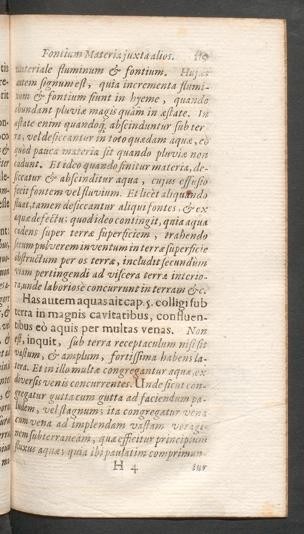 Fontium Materia juxta alios. 119
materiale fluminum & fontium. Hujus
autem signum est, quia incrementa flumi-
num & fontium fiunt in hyeme, quando
abundant pluviæ magis quàm in æstate. In
æstate enim quandoq; abscinduntur sub ter
ra, vel desiccantur in toto quædam aquæ, eò
quod pauca materia sit quando pluviæ non
cadunt. Et ideo quando finitur materia, de-
siccatur & abscinditur aqua, cujus effusio
fecit fontem vel fluvium. Et licèt aliquando
fluat, tamen desiccantur aliqui fontes. & ex
aquæ defectu: quod ideo contingit, quia aqua
cadens super terræ superficiem, trahendo
secum pulverem inventum in terræ superficie
obstructum per os terræ, includit secundùm
viam pertingendi ad viscera terræ interio-
ra, unde laboriosè concurrunt in terram &c.
Has autem aquas ait cap. 5. colligi sub
terra in magnis cavitatibus, confluen-
tibus eò aquis per multas venas. Non
est, inquit, sub terra receptaculum nisi sit
vastum, & amplum, fortissima habens la-
tera. Et in illo multæ congregantur aquæ, ex
diversis venis concurrentes. Unde sicut con-
gregatur gutta cum gutta ad faciendum pa-
ludem, vel stagnum: ita congregatur vena
cum vena ad implendam vastam voragi-
nem subterraneam, quæ efficitur principium
fluxus aquæ; quia ibi paulatim comprimun-
H 4 tur